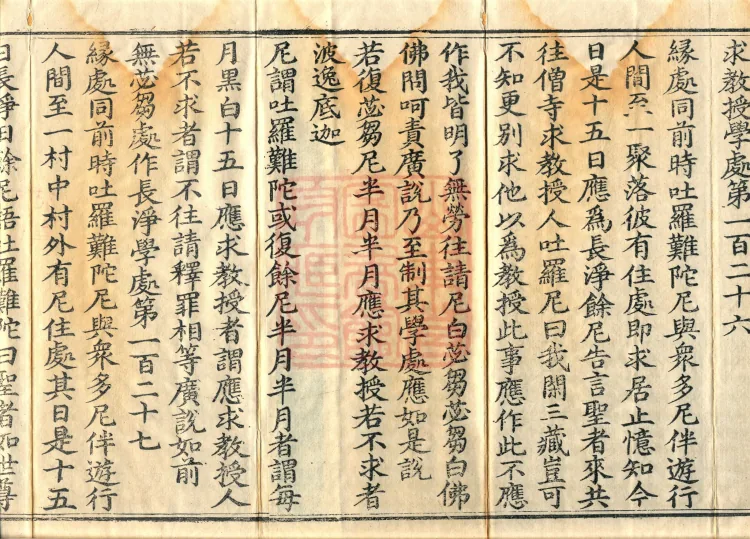 求教授學處第一百二十六
緣處同前時吐羅難陀尼與衆多尼伴遊行
人間至一聚落彼有住處即求居止憶知今
日是十五日應爲長淨餘尼告言聖者來共
往僧寺求教授人吐羅尼曰我閑三藏豈可
不知更別求他以爲教授此事應作此不應
作我皆明了無勞往請尼白苾芻苾芻白佛
佛問呵責廣說乃至制其學處應如是說
若復苾芻尼半月半月應求教授若不求者
波逸底迦
尼謂吐羅難陀或復餘尼半月半月者謂每
月黑白十五日應求教授者謂應求教授人
若不求者謂不往請釋罪相等廣說如前
無苾芻處作長淨學處第一百二十七
緣處同前時吐羅難陀尼與衆多尼伴遊行
人間至一村中村外有尼住處其日是十五
日長淨日餘尼語吐羅難陀曰聖者如世尊